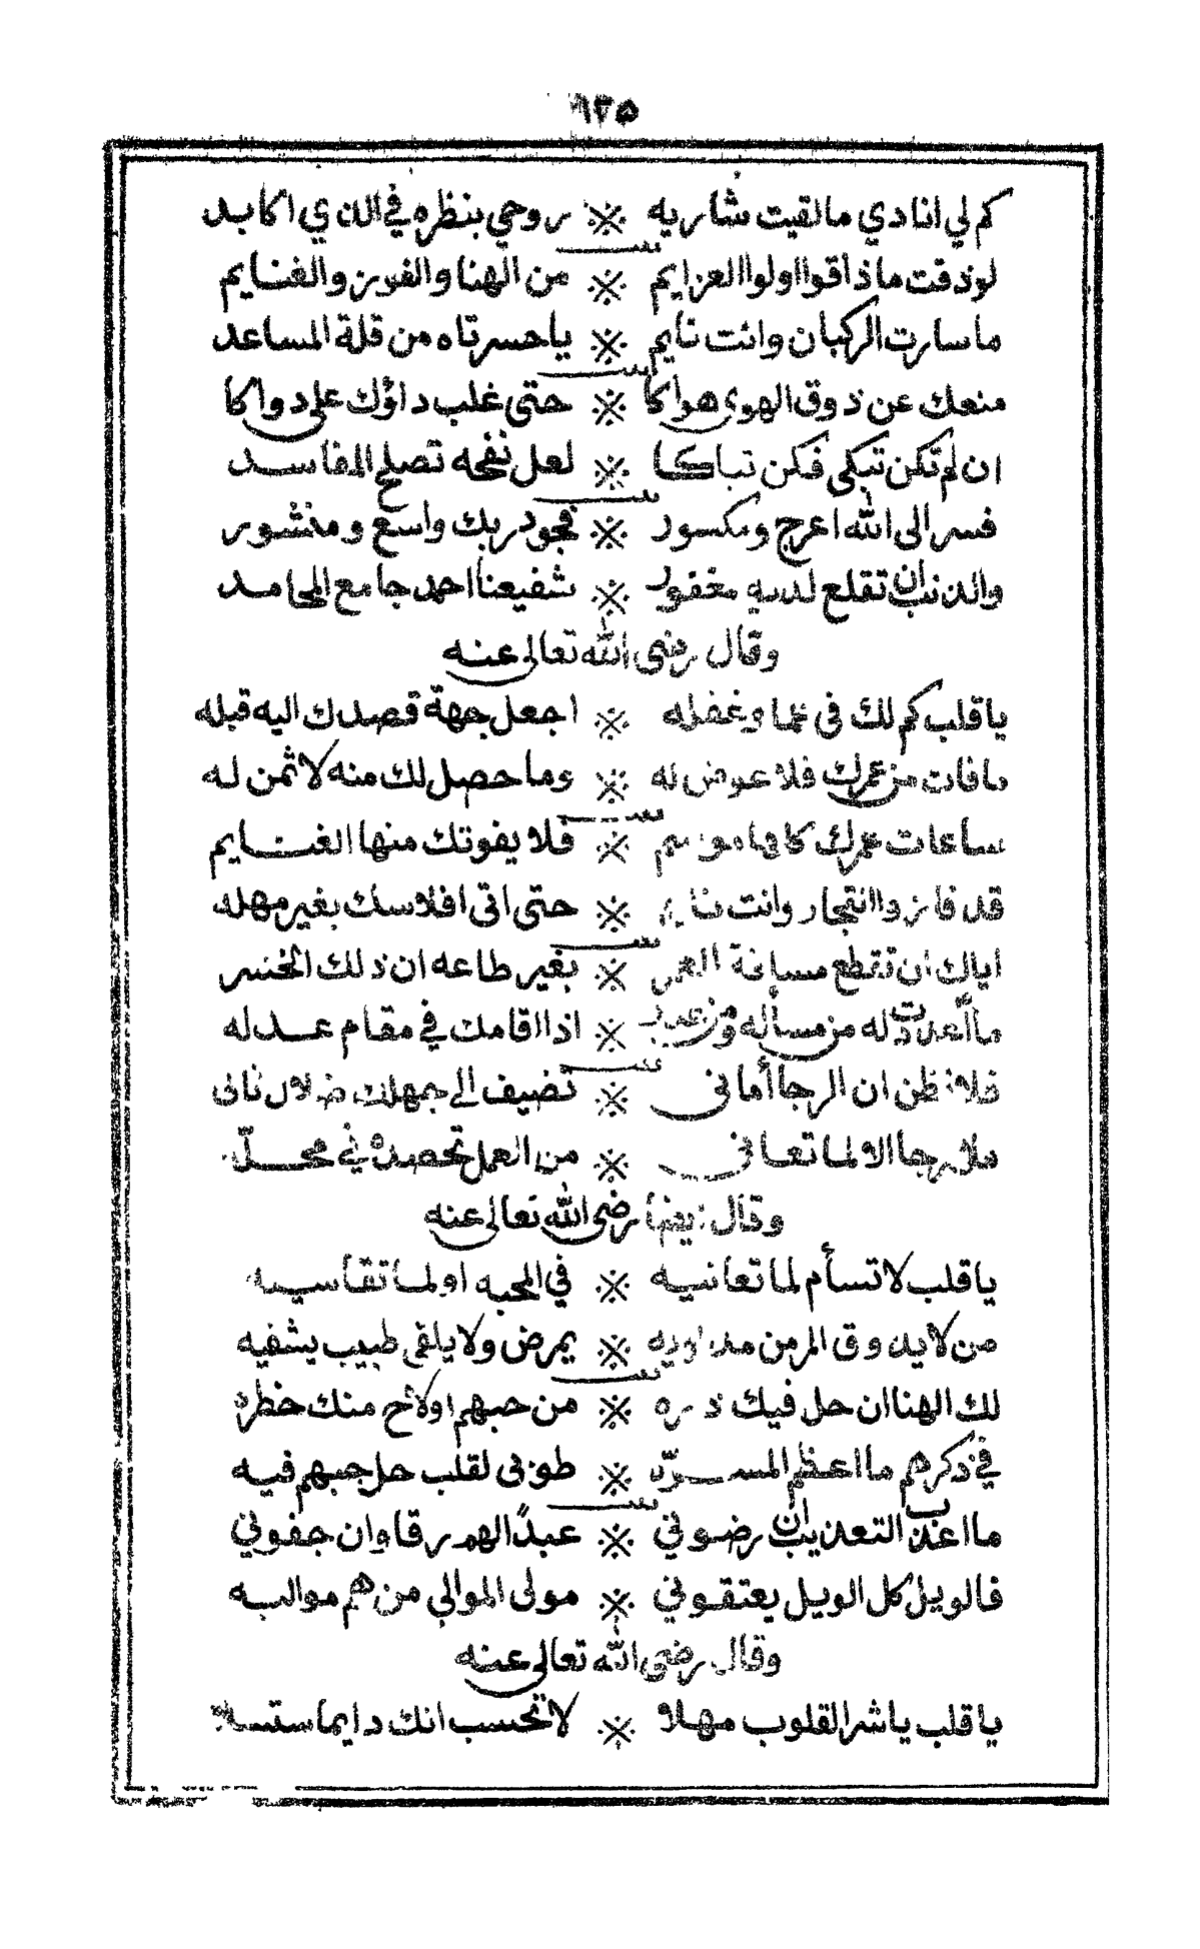 ١٢٥
كم لي انادي مالقيت شاريه ※ روحي بنظره في الذي اكابد
لوذقت ماذاقوا اولوا العزايم ※ من الهنا والفوز والغنايم
ماسارت الركبان وانت نايم ※ ياحسرتاه من قلة المساعد
منعك عن ذوق الهوى هواكا ※ حتى غلب داؤك على دواكا
ان لم تكن تبكى فكن تباكا ※ لعل نفحه تصلح المفاسد
فسر الى الله اعرج ومكسور ※ فجود ربك واسع ومنشور
والذنب ان تقلع لديه مغفور ※ شفيعنا احمد جامع المحامد
وقال رضى الله تعالى عنه
ياقلب كم لك فى عما وغفله ※ اجعل جهة قصدك اليه قبله
مافات من عمرك فلا عوض له ※ وما حصل لك منه لا ثمن له
ساعات عمرك كلها مواسم ※ فلا يفوتك منها الغنايم
قد فازوا التجار وانت نايم ※ حتى اتى افلاسك بغير مهله
اياك ان تقطع مسافة العمر ※ بغير طاعه ان ذلك الخسر
ما اعددت له من مسأله ومن عذر ※ اذا اقامك في مقام عدله
فلا تظن ان الرجا أماني ※ تضيف الى جهلك ضلال ثانى
فلا رجا الا لما تعاني ※ من العمل تحصده في محلّه
وقال ايضا رضى الله تعالى عنه
ياقلب لا تسأم لما تعانيه ※ في المحبه او لما تقاسيه
من لا يذوق المر من مداويه ※ يمرض ولا يلقى طبيب يشفيه
لك الهنا ان حل فيك ذره ※ من حبهم اولاح منك خطره
في ذكرهم ما اعظم المسرّه ※ طوبى لقلب حل حبهم فيه
ما اعذب التعذيب ان رضوني ※ عبدًا لهم رقا وان جفوني
فالويل كل الويل يعتقوني ※ مولى الموالي من هم مواليه
وقال رضى الله تعالى عنه
ياقلب ياشر القلوب مهلا ※ لا تحسب انك دايما ستسلا